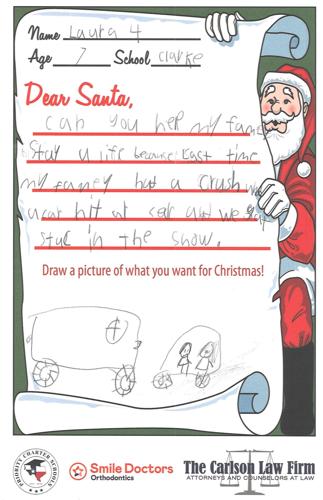 Name Laura 4
Age 7 School Clarke
Dear Santa,
can you help my
Stay a life because Last time
my famey had a Crush
a car hit at car and we got
stuc in the snow.
Draw a picture of what you want for Christmas!
PRIORITY CHARTER SCHOOLS
Smile Doctors
Orthodontics
The Carlson Law Firm
ATTORNEYS AND COUNSELORS AT LAW